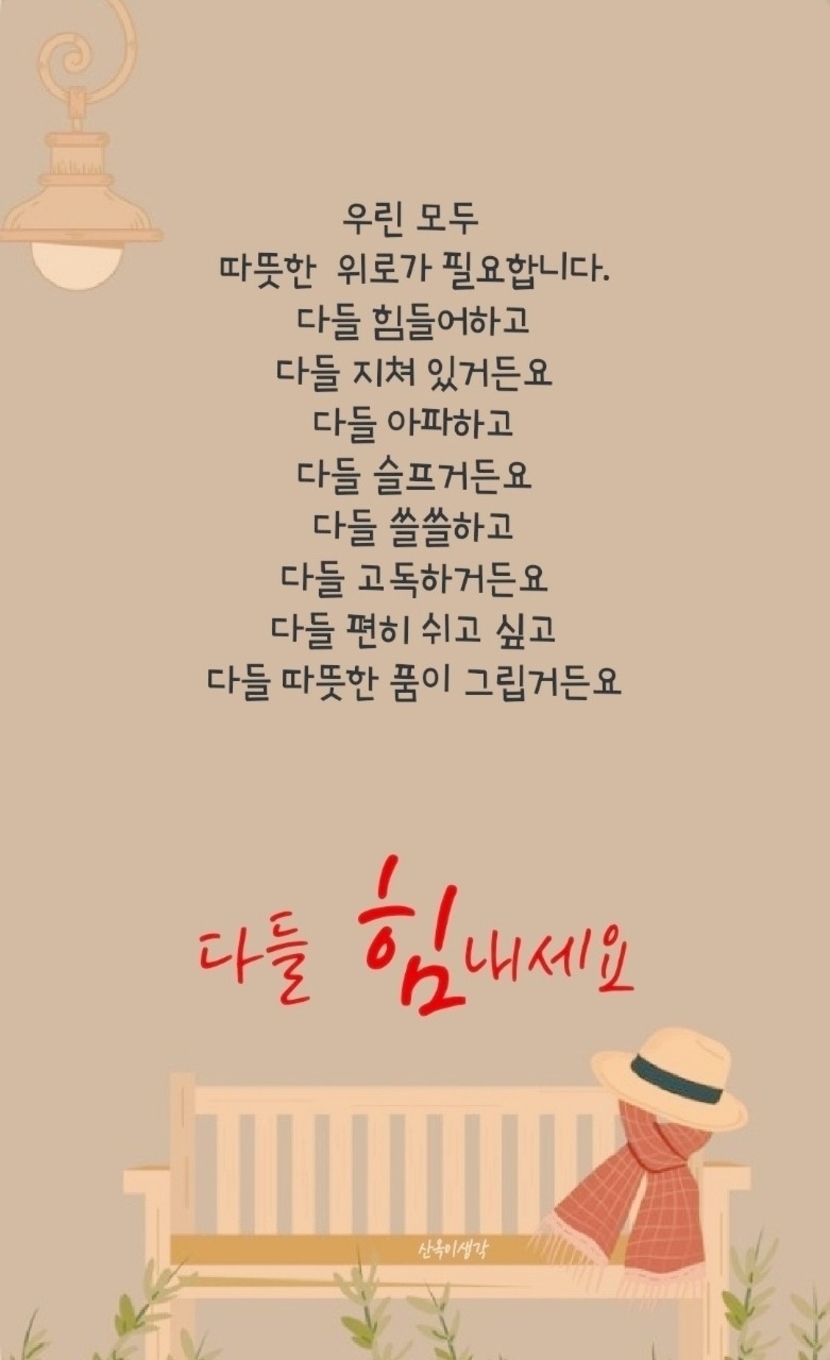 우린 모두
따뜻한 위로가 필요합니다.
다들 힘들어하고
다들 지쳐 있거든요
다들 아파하고
다들 슬프거든요
다들 쓸쓸하고
다들 고독하거든요
다들 편히 쉬고 싶고
다들 따뜻한 품이 그립거든요
다들 힘내세요
산옥이생각